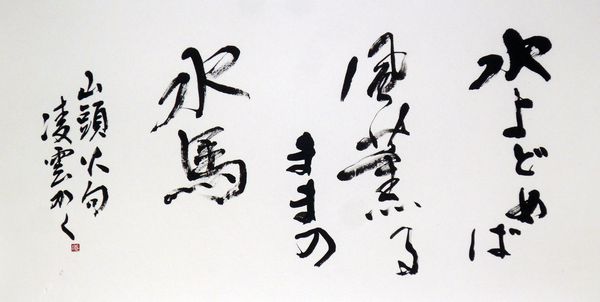 水よどめば
風薫る
ままの
水馬
山頭火句
凌雲かく